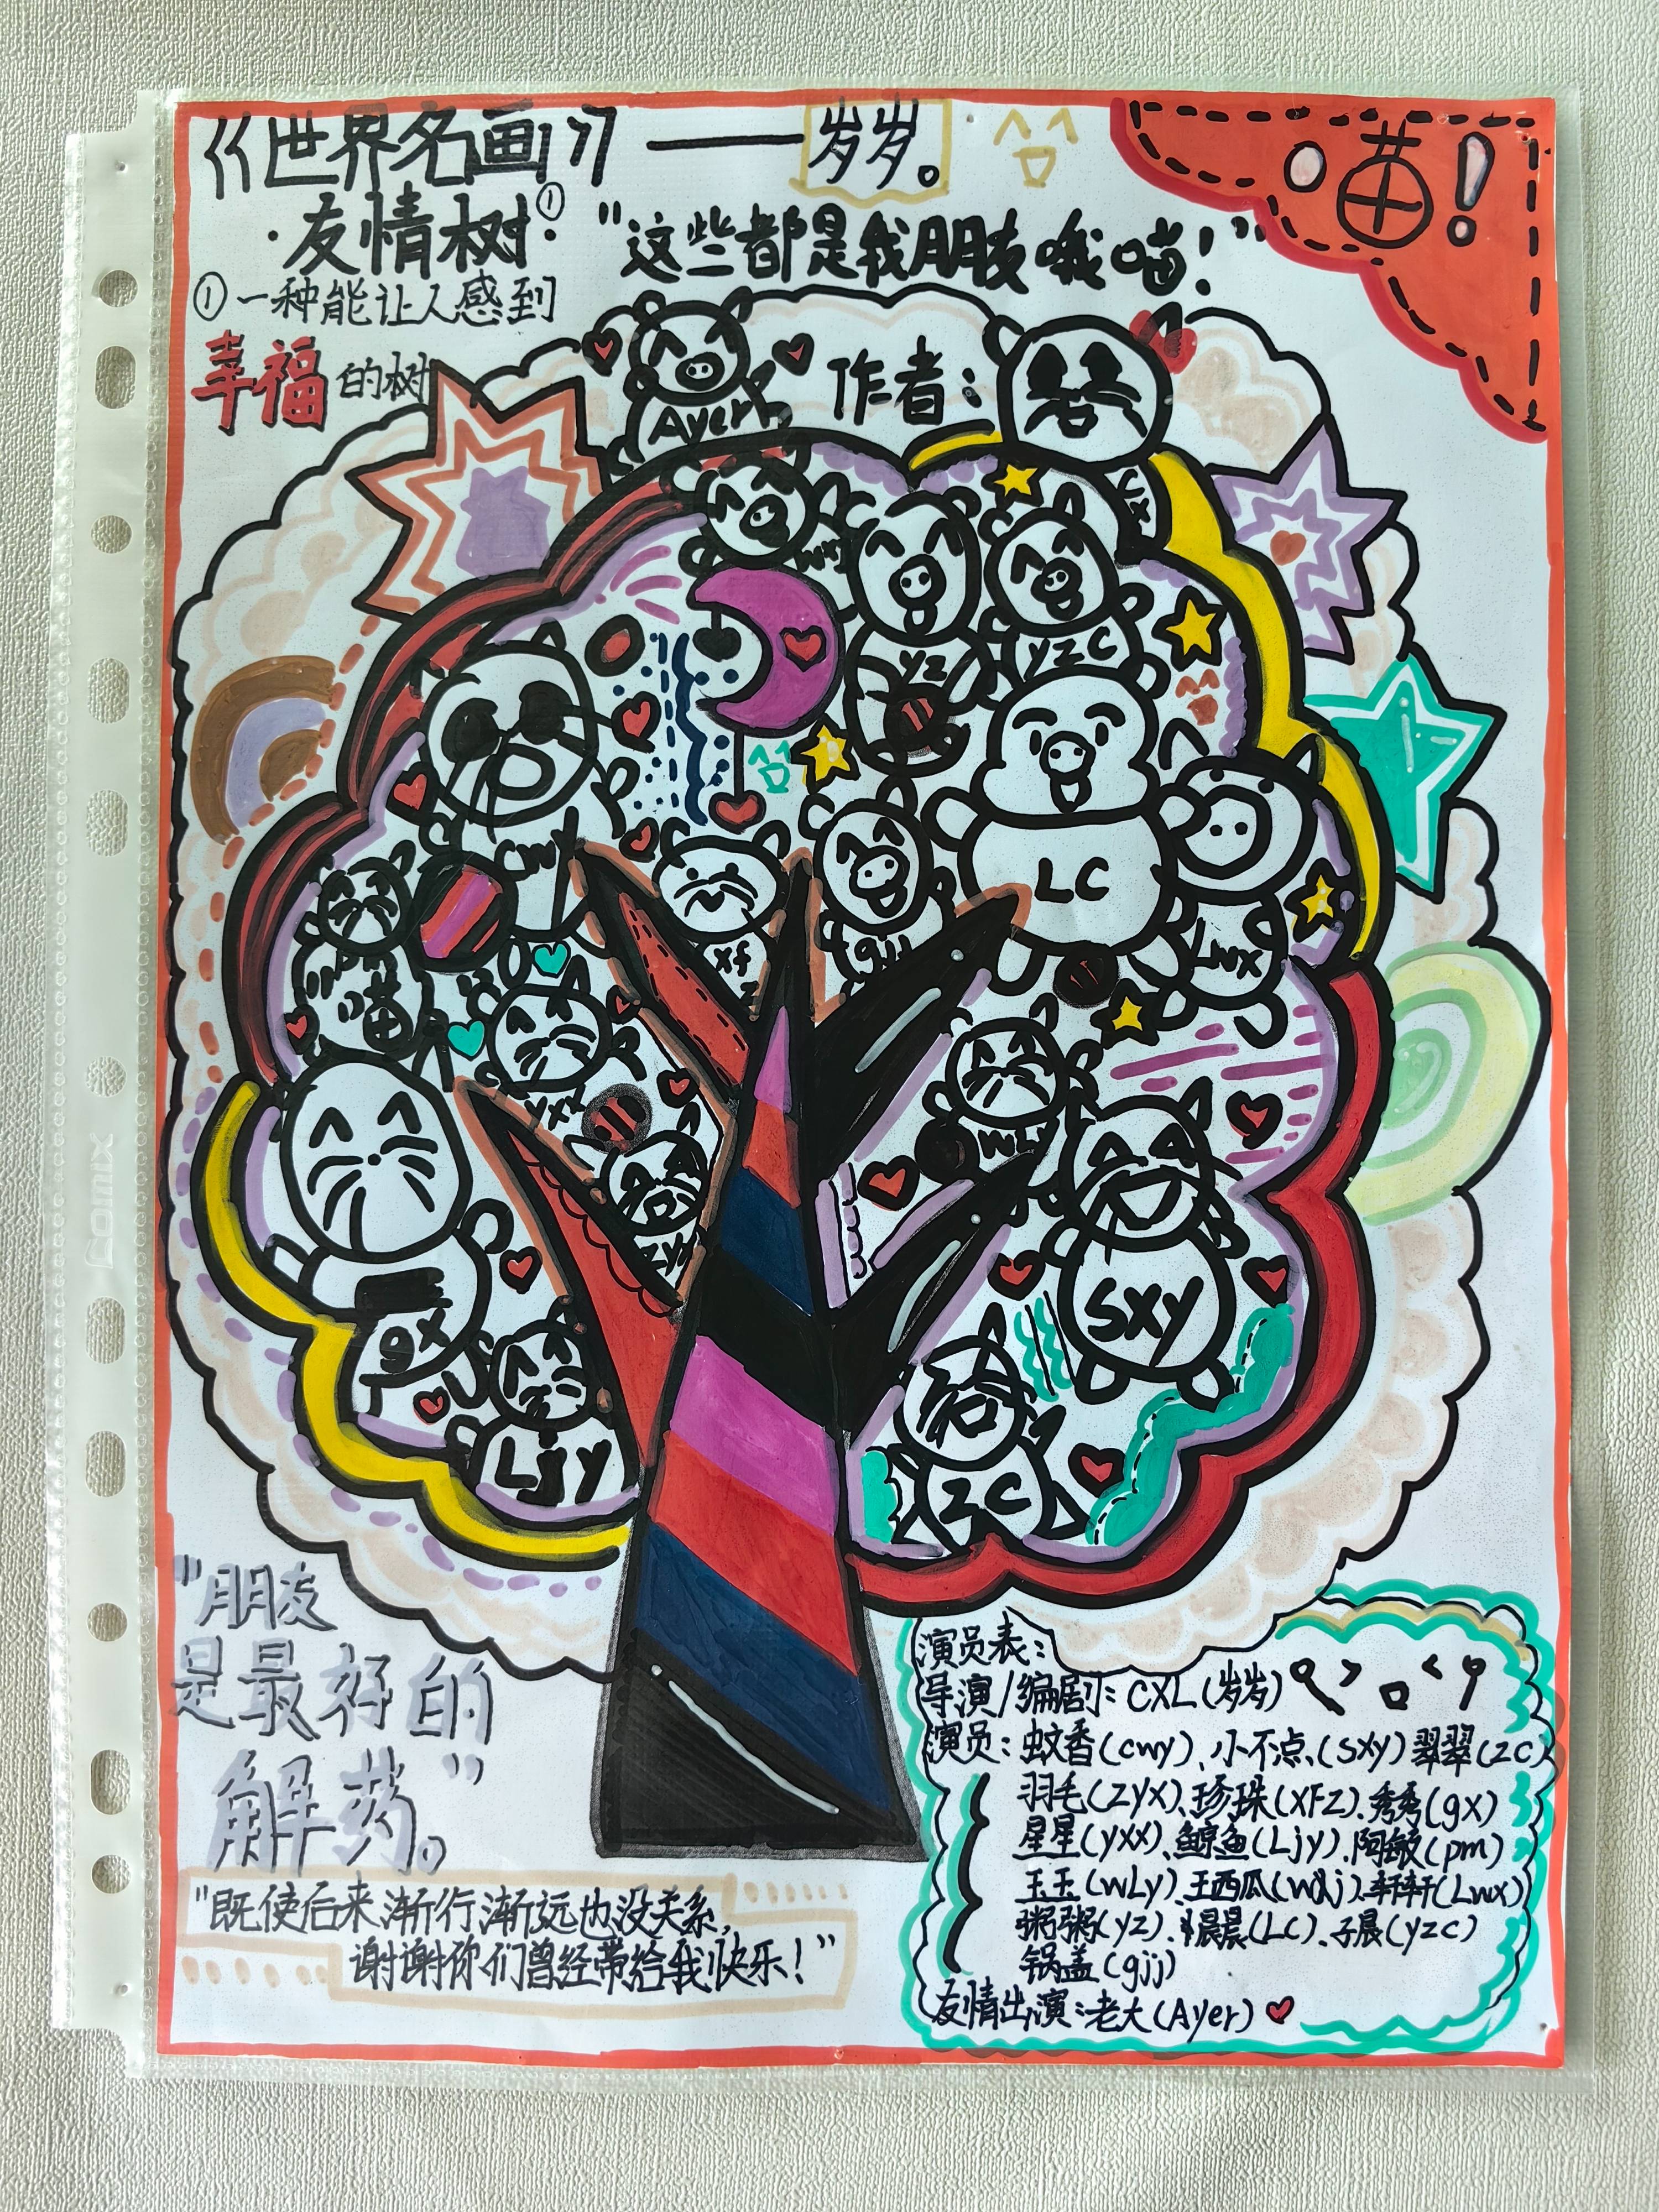 《世界名画》——岁岁。
·友情树①·
①一种能让人感到
幸福的树
"这些都是我朋友哦喵!"
喵!
Ayer
作者:
wxj
yz
yzc
LC
Lwx
cwy
喵
xf
gjj
yxx
wLy
zyx
gx
Ljy
sxy
zc
"朋友
是最好的
解药。"
"既使后来渐行渐远也没关系,
谢谢你们曾经带给我快乐!"
演员表:
导演/编剧:CXL(岁岁)
演员:蚊香(cwy)、小不点、(sxy)翠翠(zc)
羽毛(zyx)、珍珠(xfz).秀秀(gx)
星星(yxx)、鲸鱼(Ljy).阿敏(pm)
玉玉(wLy)、王西瓜、轩轩(Lwx)
粥粥(yz)、晨晨(LC)、子晨(yzc)
锅盖(gjj)
友情出演:老大(Ayer)
Comix